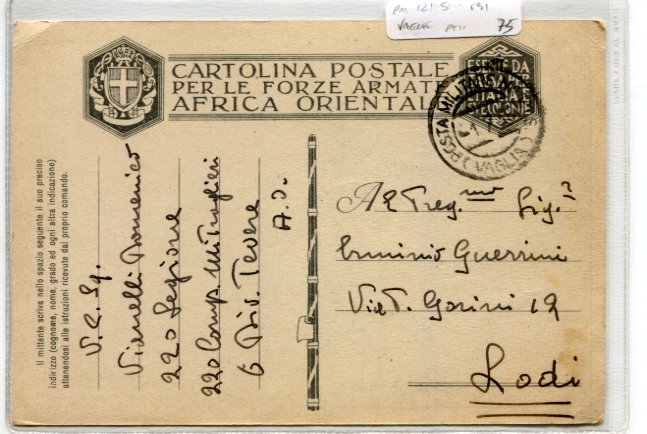 PM 121 S
VAGLIA PT 11 75
CARTOLINA POSTALE
PER LE FORZE ARMATE
AFRICA ORIENTALE
ESENTE DA
POSTA MILITARE
(VAGLIA)
Il mittente scriva nello spazio seguente il suo preciso
indirizzo (cognome, nome, grado ed ogni altra indicazione)
attenendosi alle istruzioni ricevute dal proprio comando.
V. C. Sq.
Vianelli Domenico
220 Legione
220 Comp. Mitraglieri
6 Div. Tevere
A.O.
Al Preg.mo Sig.r
Erminio Guerrini
Via P. Gorini 12
Lodi